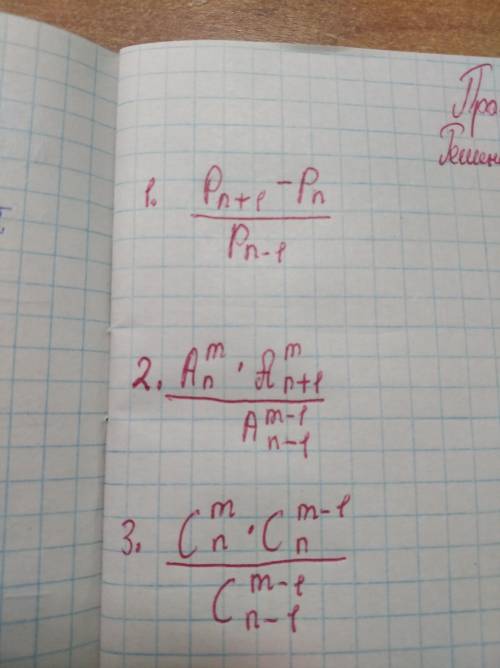 Пра
Решен
1. \frac{P_{n+1} - P_n}{P_{n-1}}
2. \frac{A_n^m \cdot A_{n+1}^m}{A_{n-1}^{m-1}}
3. \frac{C_n^m \cdot C_n^{m-1}}{C_{n-1}^{m-1}}